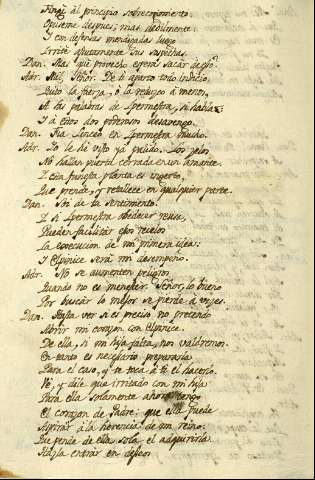 Fingí al principio sobrecogimiento:
Opúseme despues; mas debilmente:
Y con defensas mendigadas luego
Irrité astutamente sus sospechas.
Dan. Mas que provecho esperas sacar de eso?
Adr. Mil, Señor. De ti aparto todo indicio
Quito la fuerza, ò la rebaxo à menos,
A las palabras de Ipermestra, si habla:
Y à estos dos poderosos desavengo.
Dan. Fia Linceo en Ipermestra mucho.
Adr. Yo le he visto ya palido. Los zelos
No hallan puerta cerrada en un amante.
Y esta funesta planta es ingerto,
Que prende, y retallece en qualquier parte.
Dan. Soi de tu sentimento.
Y si Ipermestra obedecer reusa,
Pueden facilitar esos recelos
La execucion de mi primera idea:
Y Elpinice será mi desempeño.
Adr. No se aumenten peligros
Quando no es menester. Señor, lo bueno
Por buscar lo mejor se pierde a vezes.
Dan. Hasta ver si es preciso no pretendo
Abrir mi corazon con Elpinice.
De ella, si mi hija falta, nos valdremos.
En tanto es necesario prepararla
Para el caso, y te toca à ti el hacerlo.
Vé, y dile que irritado con mi hija
Para ella solamente ahora tengo
El corazon de Padre: que ella puede
Aspirar à la herencia de un reino:
Que pende de ella sola el adquirirla.
Hazla entrar en deseos